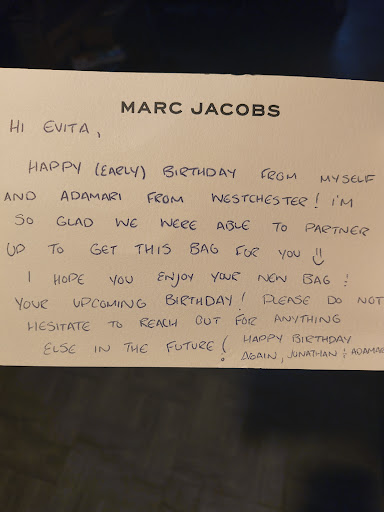 MARC JACOBS
HI EVITA,
HAPPY (EARLY) BIRTHDAY FROM MYSELF
AND ADAMARI FROM WESTCHESTER! I'M
SO GLAD WE WERE ABLE TO PARTNER
UP TO GET THIS BAG FOR YOU :)
I HOPE YOU ENJOY YOUR NEW BAG !
YOUR UPCOMING BIRTHDAY! PLEASE DO NOT
HESITATE TO REACH OUT FOR ANYTHING
ELSE IN THE FUTURE! HAPPY BIRTHDAY
AGAIN, JUNATHAN & ADAMARI